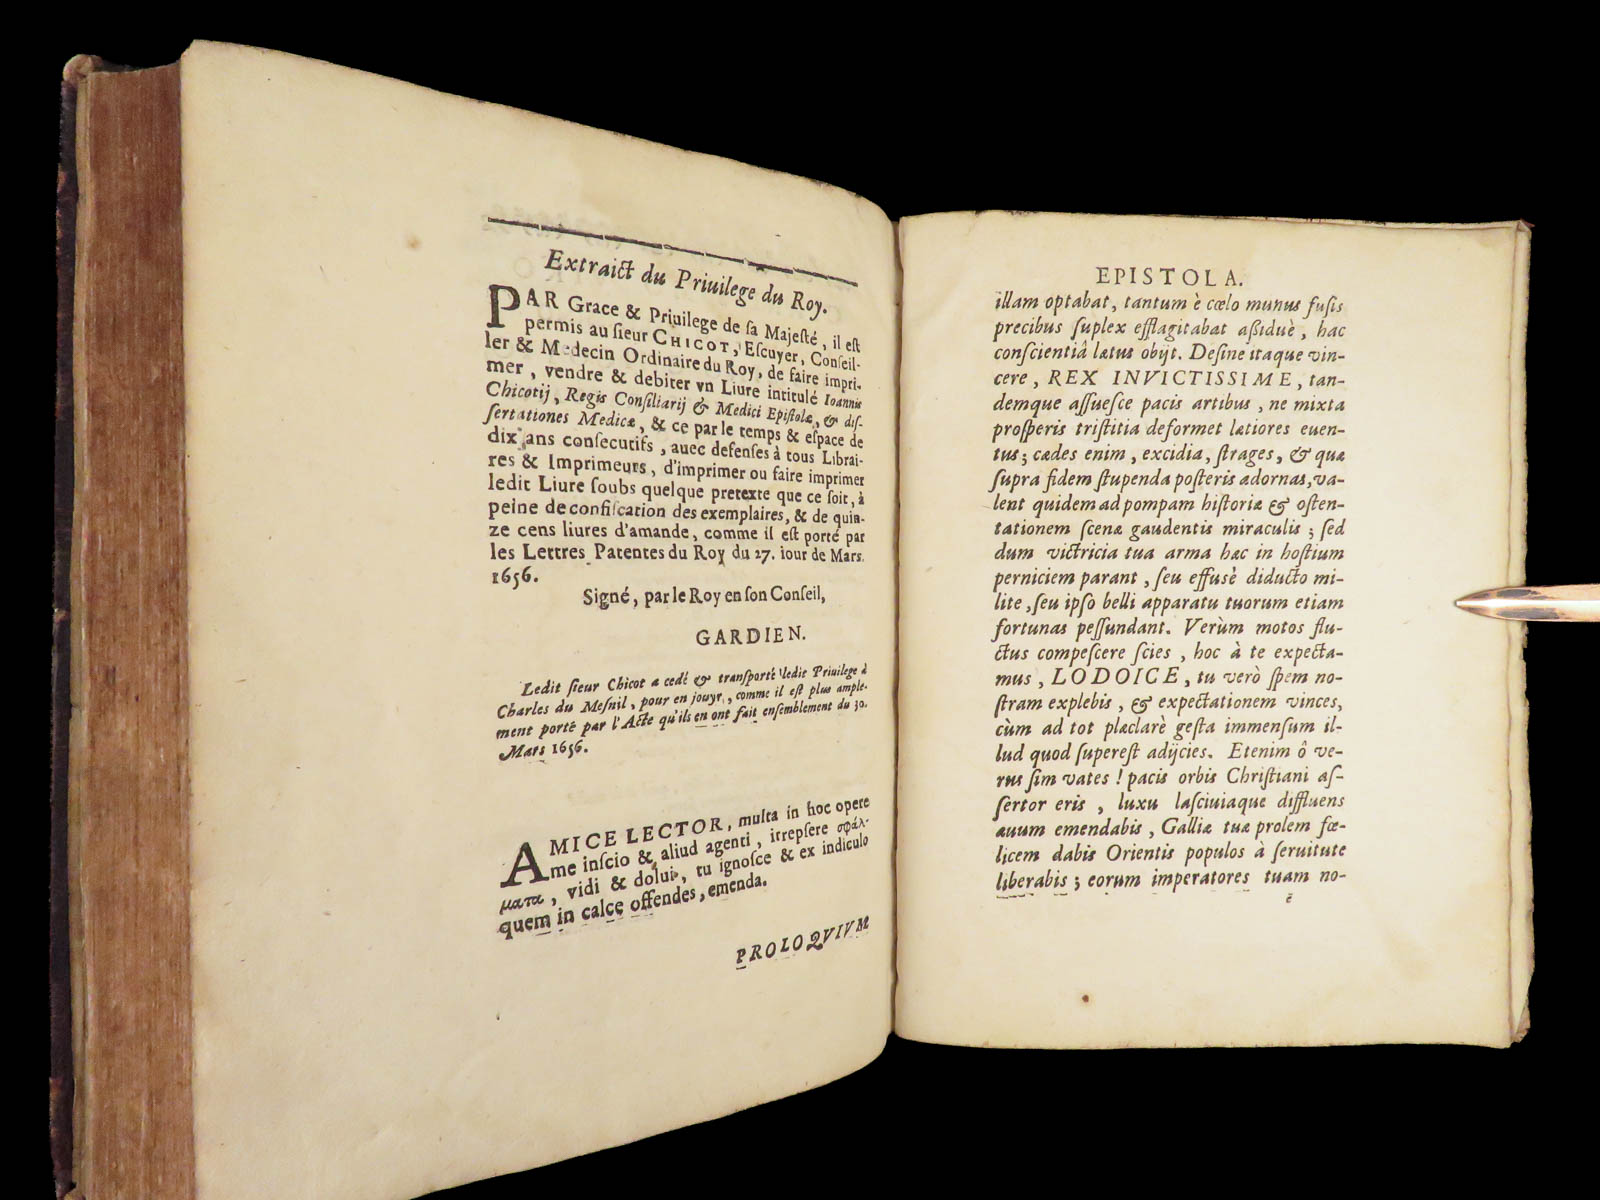 Extraict du Priuilege du Roy.
PAR Grace & Priuilege de ſa Majeſté, il eſt
permis au ſieur CHICOT, Eſcuyer, Conſeil-
ler & Medecin Ordinaire du Roy, de faire impri-
mer, vendre & debiter vn Liure intitulé Ioannis
Chicotij, Regis Conſiliarij & Medici Epiſtolæ, & diſ-
ſertationes Medicæ, & ce par le temps & eſpace de
dix ans conſecutifs, auec defenſes à tous Librai-
res & Imprimeurs, d'imprimer ou faire imprimer
ledit Liure ſoubs quelque pretexte que ce ſoit, à
peine de confiſcation des exemplaires, & de quin-
ze cens liures d'amande, comme il eſt porté par
les Lettres Patentes du Roy du 27. iour de Mars.
1656.
Signé, par le Roy en ſon Conſeil,
GARDIEN.
Ledit ſieur Chicot a cedé & tranſporté ledit Priuilege à
Charles du Meſnil, pour en jouyr, comme il eſt plus ample-
ment porté par l'Acte qu'ils en ont fait enſemblement du 30.
Mars 1656.
AMICE LECTOR, multa in hoc opere
me inſcio & aliud agenti, irrepſere σφάλ-
ματα, vidi & dolui, tu ignoſce & ex indiculo
quem in calce offendes, emenda.
PROLOQVIVM
EPISTOLA.
illam optabat, tantum è cœlo munus fuſis
precibus ſuplex efflagitabat aßiduè, hac
conſcientiâ lætus obijt. Deſine itaque vin-
cere, REX INVICTISSIME, tan-
demque aſſueſce pacis artibus, ne mixta
proſperis triſtitia deformet lætiores euen-
tus; cædes enim, excidia, ſtrages, & quæ
ſupra fidem ſtupenda poſteris adornas, va-
lent quidem ad pompam hiſtoriæ & oſten-
tationem ſcenæ gaudentis miraculis; ſed
dum victricia tua arma hac in hoſtium
perniciem parant, ſeu effusè diducto mi-
lite, ſeu ipſo belli apparatu tuorum etiam
fortunas peſſundant. Verùm motos flu-
ctus compeſcere ſcies, hoc à te expecta-
mus, LODOICE, tu verò ſpem no-
ſtram explebis, & expectationem vinces,
cùm ad tot præclarè geſta immenſum il-
lud quod ſupereſt adijcies. Etenim ô ve-
rus ſim vates! pacis orbis Chriſtiani aſ-
ſertor eris, luxu laſciuiaque diffluens
æuum emendabis, Galliæ tuæ prolem fœ-
licem dabis Orientis populos à ſeruitute
liberabis; eorum imperatores tuam no-
ē